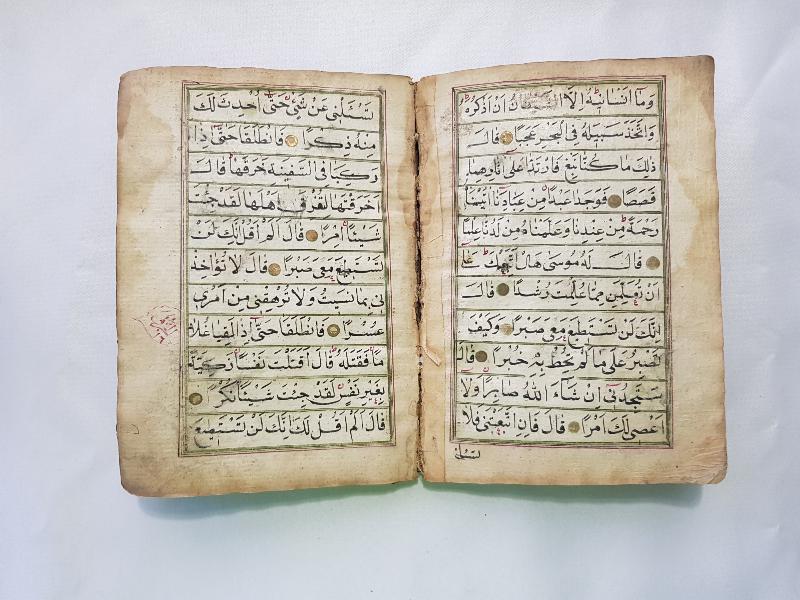 وَمَا اَنْسَانِيهُ اِلَّا الشَّيْطَانُ اَنْ اَذْكُرَهُ
وَاتَّخَذَ سَبِيلَهُ فِى الْبَحْرِ عَجَبًا قَالَ
ذٰلِكَ مَا كُنَّا نَبْغِ فَارْتَدَّا عَلٰى اٰثَارِهِمَا
قَصَصًا فَوَجَدَا عَبْدًا مِنْ عِبَادِنَا اٰتَيْنَاهُ
رَحْمَةً مِنْ عِنْدِنَا وَعَلَّمْنَاهُ مِنْ لَدُنَّا عِلْمًا
قَالَ لَهُ مُوسٰى هَلْ اَتَّبِعُكَ عَلٰى
اَنْ تُعَلِّمَنِ مِمَّا عُلِّمْتَ رُشْدًا قَالَ
اِنَّكَ لَنْ تَسْتَطِيعَ مَعِىَ صَبْرًا وَكَيْفَ
تَصْبِرُ عَلٰى مَا لَمْ تُحِطْ بِهِ خُبْرًا قَالَ
سَتَجِدُنِى اِنْ شَاءَ اللّٰهُ صَابِرًا وَلَا
اَعْصِى لَكَ اَمْرًا قَالَ فَاِنِ اتَّبَعْتَنِى فَلَا
تَسْـَٔلْنِى
تَسْـَٔلْنِى عَنْ شَىْءٍ حَتّٰى اُحْدِثَ لَكَ
مِنْهُ ذِكْرًا فَانْطَلَقَا حَتّٰى اِذَا
رَكِبَا فِى السَّفِينَةِ خَرَقَهَا قَالَ
اَخَرَقْتَهَا لِتُغْرِقَ اَهْلَهَا لَقَدْ جِئْتَ
شَيْئًا اِمْرًا قَالَ اَلَمْ اَقُلْ اِنَّكَ لَنْ
تَسْتَطِيعَ مَعِىَ صَبْرًا قَالَ لَا تُؤَاخِذْ
نِى بِمَا نَسِيتُ وَلَا تُرْهِقْنِى مِنْ اَمْرِى
عُسْرًا فَانْطَلَقَا حَتّٰى اِذَا لَقِيَا غُلَا
مًا فَقَتَلَهُ قَالَ اَقَتَلْتَ نَفْسًا زَكِيَّةً
بِغَيْرِ نَفْسٍ لَقَدْ جِئْتَ شَيْئًا نُكْرًا
قَالَ اَلَمْ اَقُلْ لَكَ اِنَّكَ لَنْ تَسْتَطِيعَ